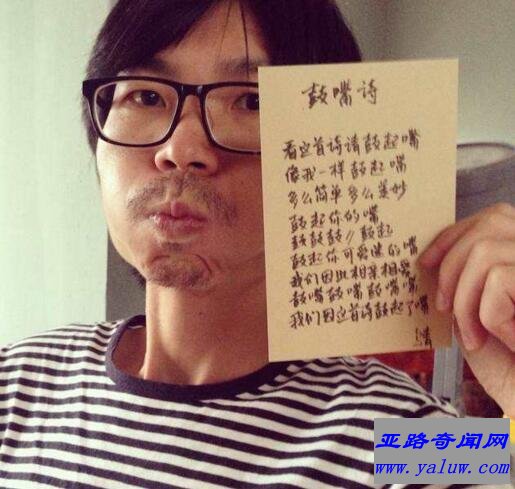 鼓嘴诗
看这首诗请鼓起嘴
像我一样鼓起嘴
多么简单多么美妙
鼓起你的嘴
鼓鼓鼓//鼓起
鼓起你可爱迷的嘴
我们因此相亲相爱
鼓嘴鼓嘴鼓嘴嘴
我们因这首诗鼓起了嘴
亚路奇闻网
www.yaluw.com